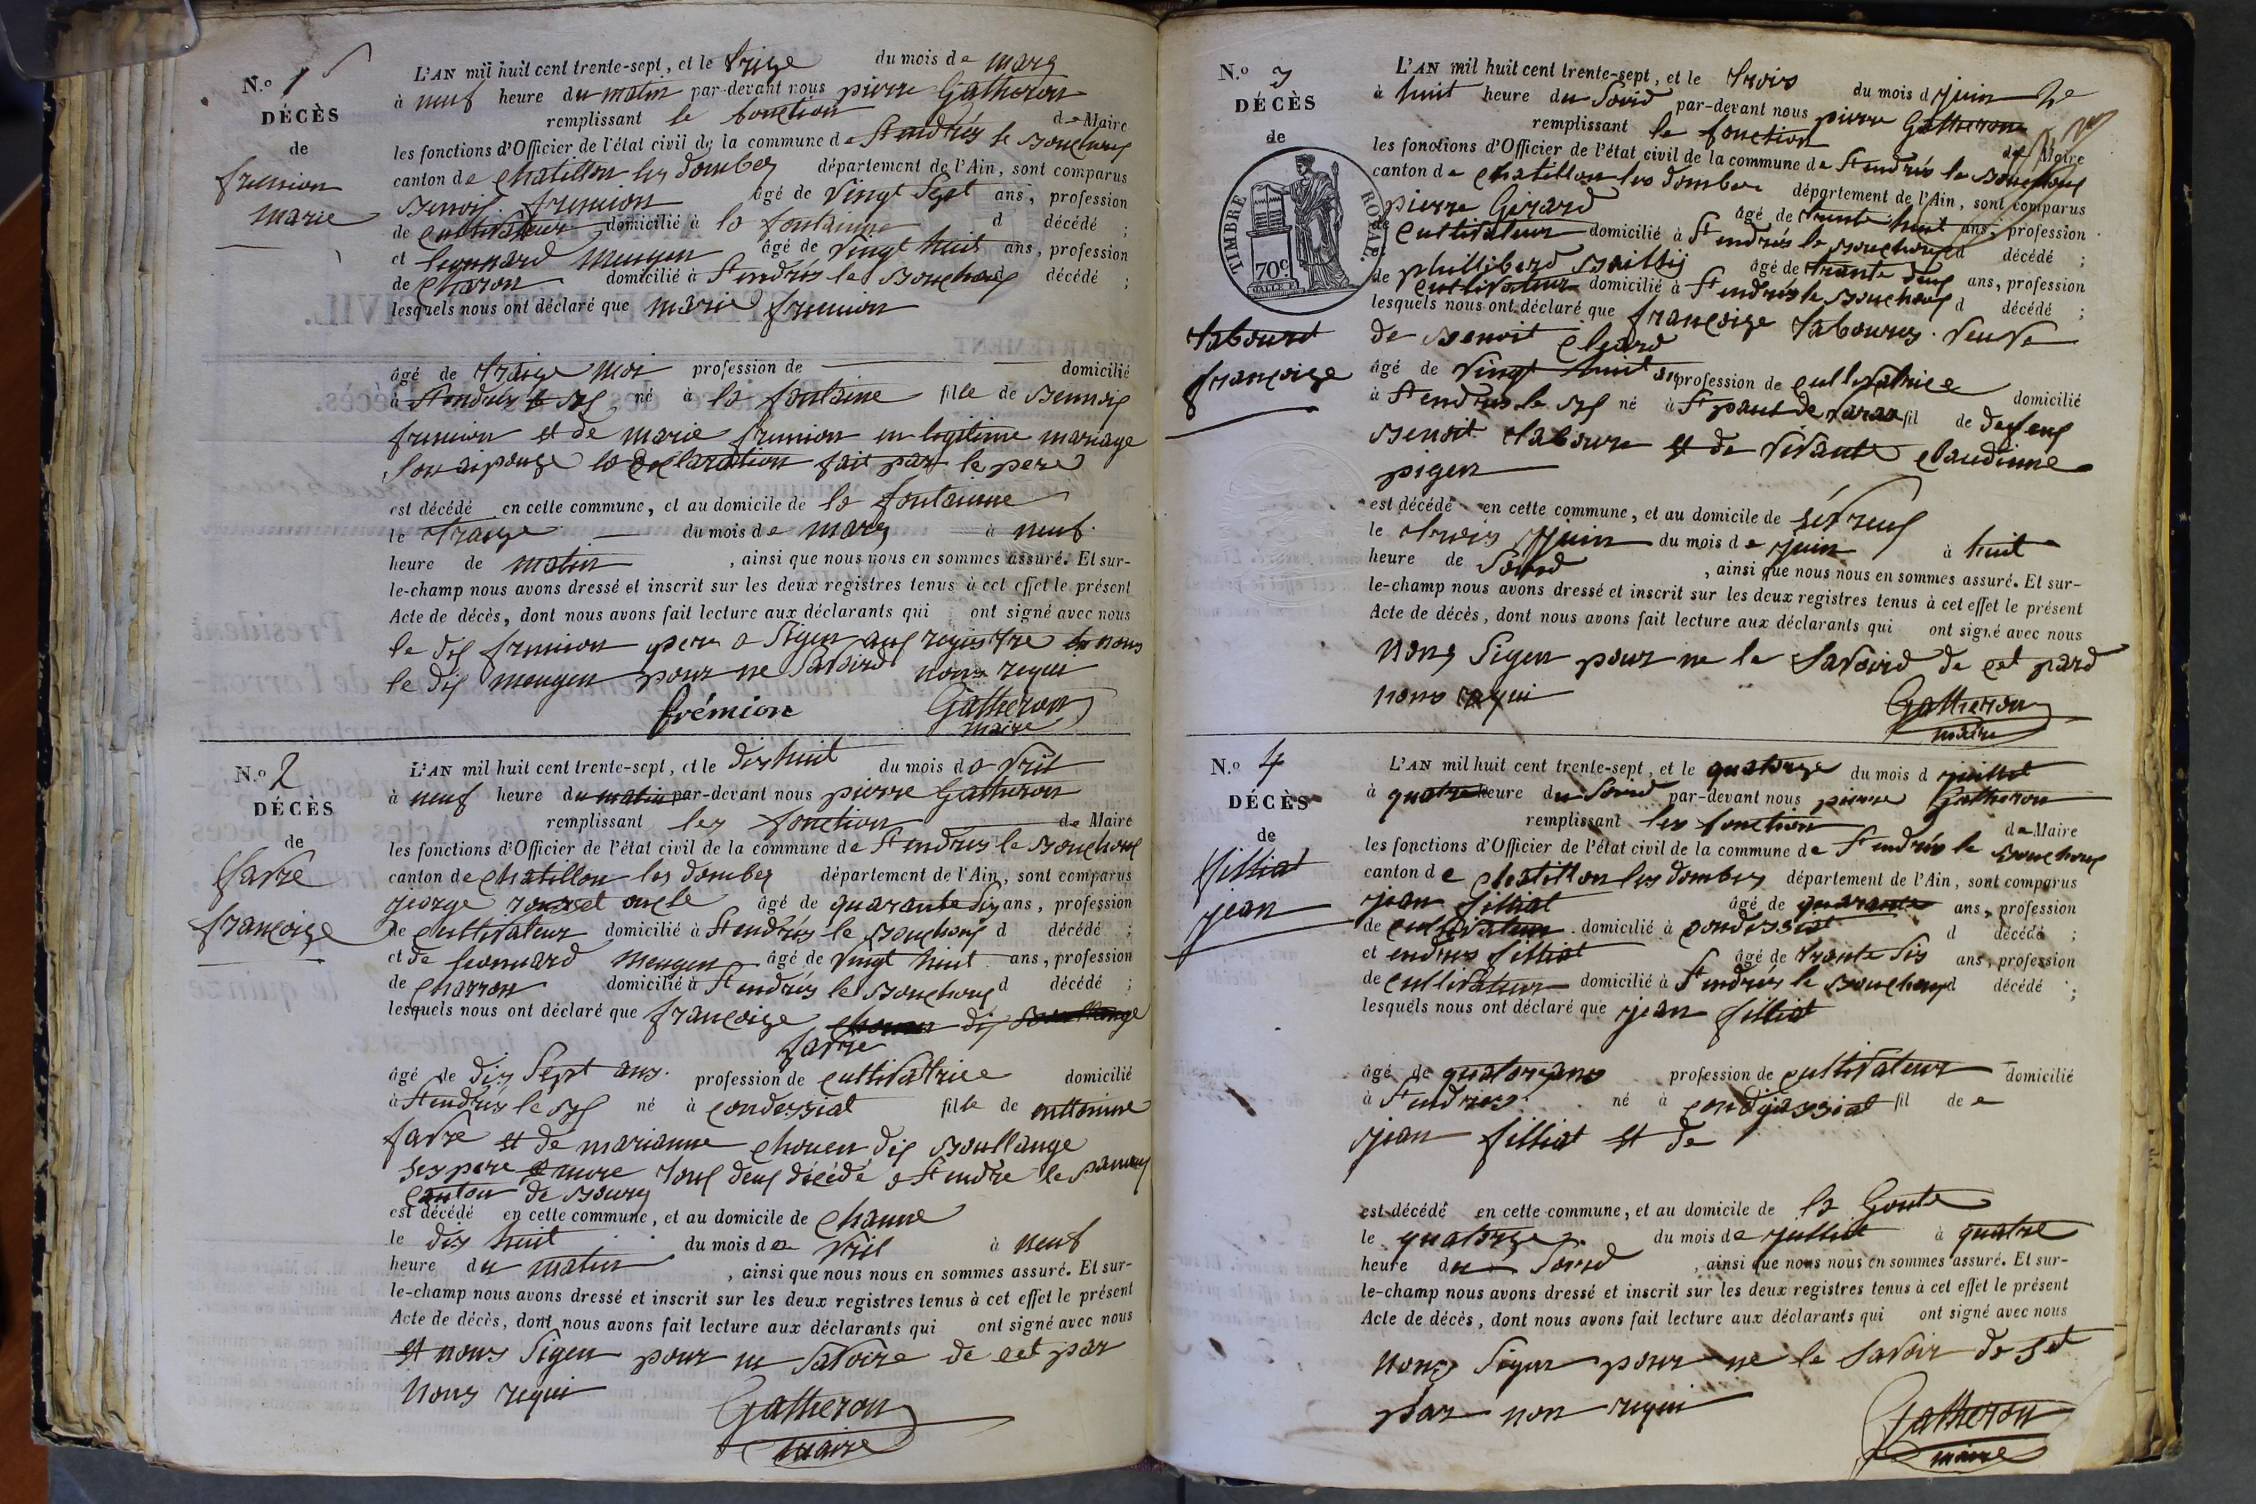 N.o 1
DÉCÈS
de
fremion
marie
L'AN mil huit cent trente-sept, et le trize du mois de marg
à neuf heure du matin par-devant nous pierre Gatheron
remplissant le fonction de Maire
les fonctions d'Officier de l'état civil de la commune de St endrés le Bouchoux
canton de Chatillon les dombes département de l'Ain, sont comparus
Benoit fremion âgé de vingt Sept ans, profession
de Cultivateur domicilié à la fontainne d décédé ;
et leonnard mengen âgé de vingt huit ans, profession
de Charon domicilié à St endrés le Bouchoux d décédé ;
lesquels nous ont déclaré que marie fremion
âgé de traize moi profession de domicilié
à St endrés le dit né à la fontaine fille de Bennoit
fremion et de marie fremion en legitime mariage
Son aipouze la declaration fait par le pere
est décédé en cette commune, et au domicile de la fontainne
le traize du mois de marg à neuf
heure de matin , ainsi que nous nous en sommes assuré. Et sur-
le-champ nous avons dressé et inscrit sur les deux registres tenus à cet effet le présent
Acte de décès, dont nous avons fait lecture aux déclarants qui ont signé avec nous
le dit fremion pere a Sigen aux registre et nous
le dit mengen pour ne Savoird nous requi
frémion Gatheron
maire
N.o 2
DÉCÈS
de
favre
françoize
L'AN mil huit cent trente-sept, et le dix huit du mois d a vril
à neuf heure du matin par-devant nous pierre Gatheron
remplissant les fonction de Maire
les fonctions d'Officier de l'état civil de la commune de St endrés le Bouchoux
canton de Chatillon les dombes département de l'Ain, sont comparus
jiorge rousset oncle âgé de quarante dix ans, profession
de Cultivateur domicilié à St endrés le Bouchoux d décédé ;
et de leonnard mengen âgé de vingt huit ans, profession
de Charron domicilié à St endrés le Bouchoux d décédé ;
lesquels nous ont déclaré que françoize chouen dit Boullange
favre
âgé de dix Sept ans profession de Cultivatrice domicilié
à St endrés le dit né à Condessiat fille de enttoinne
favre et de marianne chouen dit Boullange
Ses pere et mere tous deux décédé a St endré le panoux
Canton de Bourg
est décédé en cette commune, et au domicile de Channe
le dix huit du mois d a vril à neuf
heure du matin , ainsi que nous nous en sommes assuré. Et sur-
le-champ nous avons dressé et inscrit sur les deux registres tenus à cet effet le présent
Acte de décès, dont nous avons fait lecture aux déclarants qui ont signé avec nous
et nous Sigen pour ne Savoire de cet par
nous requi
Gatheron
maire
N.o 3
DÉCÈS
de
TIMBRE ROYAL
70c
tabouret
françoize
L'AN mil huit cent trente-sept, et le trois du mois d juin
à huit heure du Soird par-devant nous pierre Gatheron
remplissant le fonction de Maire
les fonctions d'Officier de l'état civil de la commune de St endrés le Bouchoux
canton de Chatillon les dombes département de l'Ain, sont comparus
pierre Girard âgé de trente huit ans, profession
de Cultivateur domicilié à St endrés le Bouchoux d décédé ;
et philliberd Baillij âgé de trante deux ans, profession
de Cultivateur domicilié à St endrés le Bouchoux d décédé ;
lesquels nous ont déclaré que françoize tabouret veuve
de Benoit
âgé de vingt huit ans profession de Cultivatrice domicilié
à St endrés le dit né à St paul de varax fil de defeux
Benoit tabouret et de vivante Claudinne
pigen
est décédé en cette commune, et au domicile de
le trois juin du mois de juin à huit
heure de Soird , ainsi que nous nous en sommes assuré. Et sur-
le-champ nous avons dressé et inscrit sur les deux registres tenus à cet effet le présent
Acte de décès, dont nous avons fait lecture aux déclarants qui ont signé avec nous
nons Sigen pour ne le Savoird de cet pard
nons requi
Gatheron
maire
N.o 4
DÉCÈS
de
filliat
jean
L'AN mil huit cent trente-sept, et le quatorze du mois d juillet
à quatre heure du Soird par-devant nous pierre Gatheron
remplissant les fonction de Maire
les fonctions d'Officier de l'état civil de la commune de St endrés le Bouchoux
canton de Chatillon les dombes département de l'Ain, sont comparus
jean filliat âgé de quarante ans, profession
de Cultivateur domicilié à Condessiat d décédé ;
et endres filliat âgé de trante Six ans, profession
de Cultivateur domicilié à St endrés le Bouchoux d décédé ;
lesquels nous ont déclaré que jean filliat
âgé de quatorzans profession de Cultivateur domicilié
à St endres né à Condejassiat fil de
jean filliat et de
est décédé en cette commune, et au domicile de la Goute
le quatorze du mois de juillet à quatre
heure du Soird , ainsi que nous nous en sommes assuré. Et sur-
le-champ nous avons dressé et inscrit sur les deux registres tenus à cet effet le présent
Acte de décès, dont nous avons fait lecture aux déclarants qui ont signé avec nous
nons Sigen pour ne le Savoir de Set
par non requi
Gatheron
maire